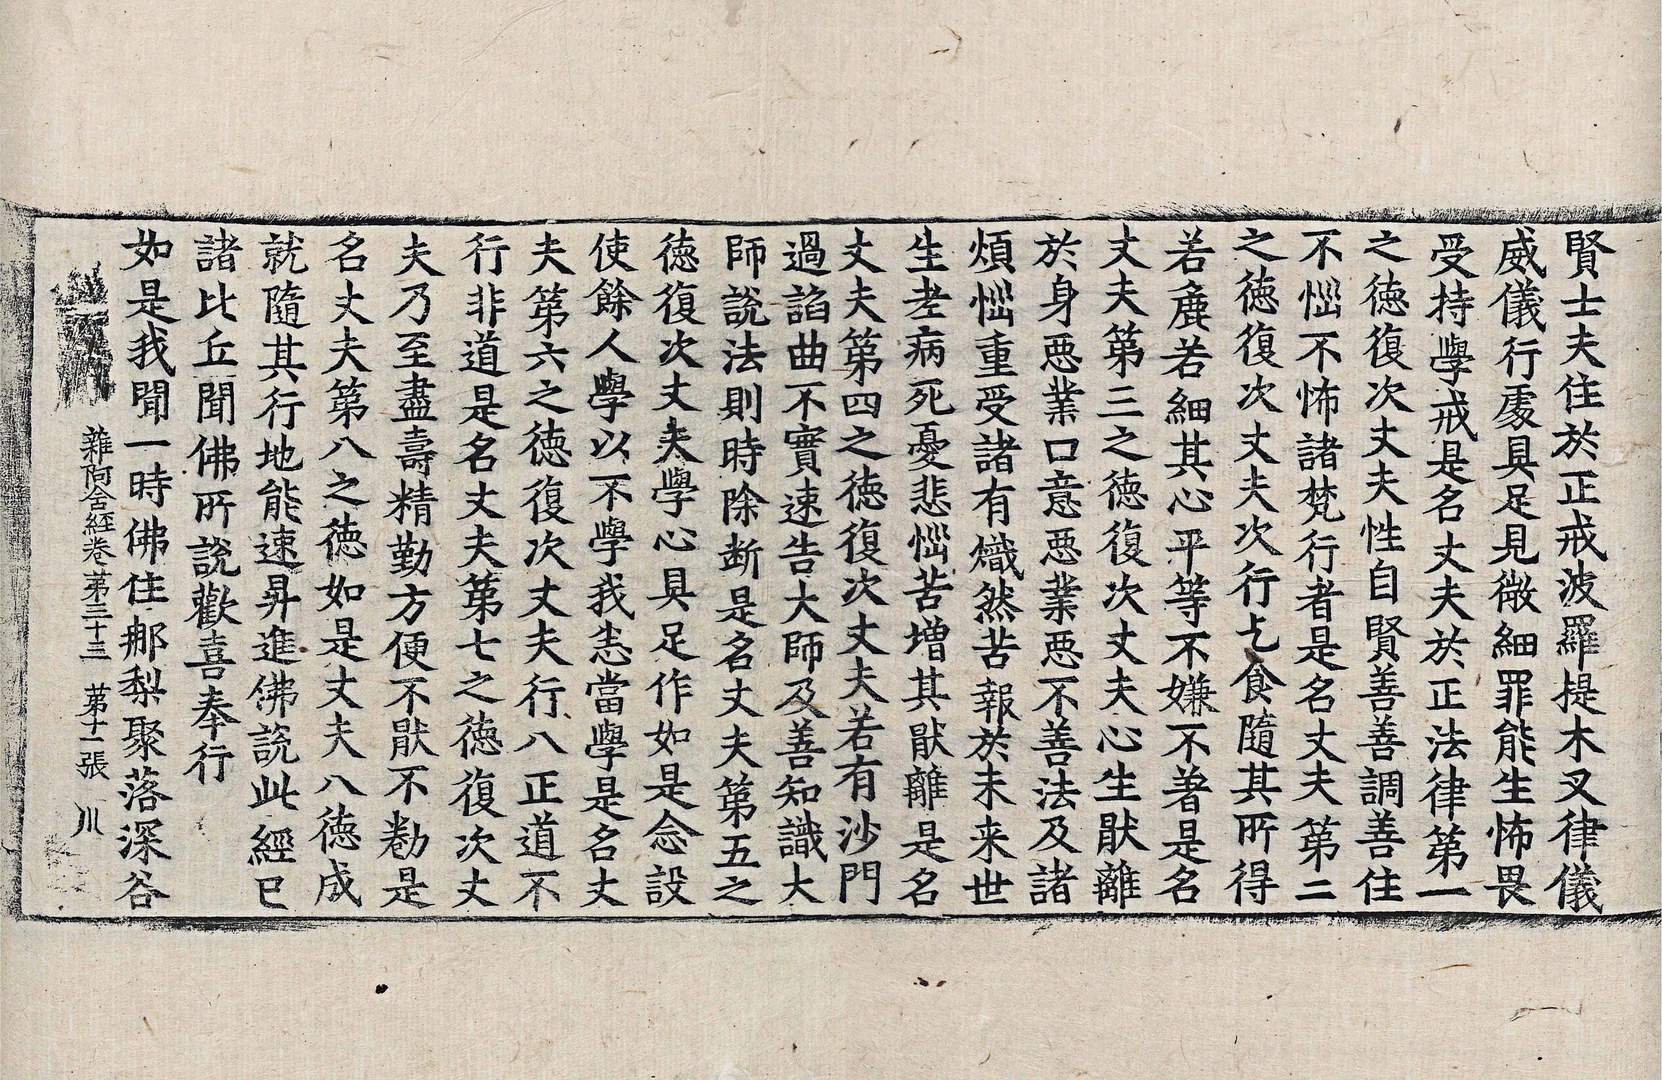 賢士夫住於正戒波羅提木叉律儀
威儀行處具足見微細罪能生怖畏
受持學戒是名丈夫於正法律第一
之德復次丈夫性自賢善善調善住
不惱不怖諸梵行者是名丈夫第二
之德復次丈夫次行乞食隨其所得
若麁若細其心平等不嫌不著是名
丈夫第三之德復次丈夫心生猒離
於身惡業口意惡業惡不善法及諸
煩惱重受諸有熾然苦報於未来世
生老病死憂悲惱苦增其猒離是名
丈夫第四之德復次丈夫若有沙門
過諂曲不實速告大師及善知識大
師說法則時除断是名丈夫第五之
德復次丈夫學心具足作如是念設
使餘人學以不學我悉當學是名丈
夫第六之德復次丈夫行八正道不
行非道是名丈夫第七之德復次丈
夫乃至盡壽精勤方便不猒不勌是
名丈夫第八之德如是丈夫八德成
就隨其行地能速昇進佛說此經已
諸比丘聞佛所說歡喜奉行
如是我聞一時佛住那梨聚落深谷
雜阿含經卷第三十三 第十二張 川